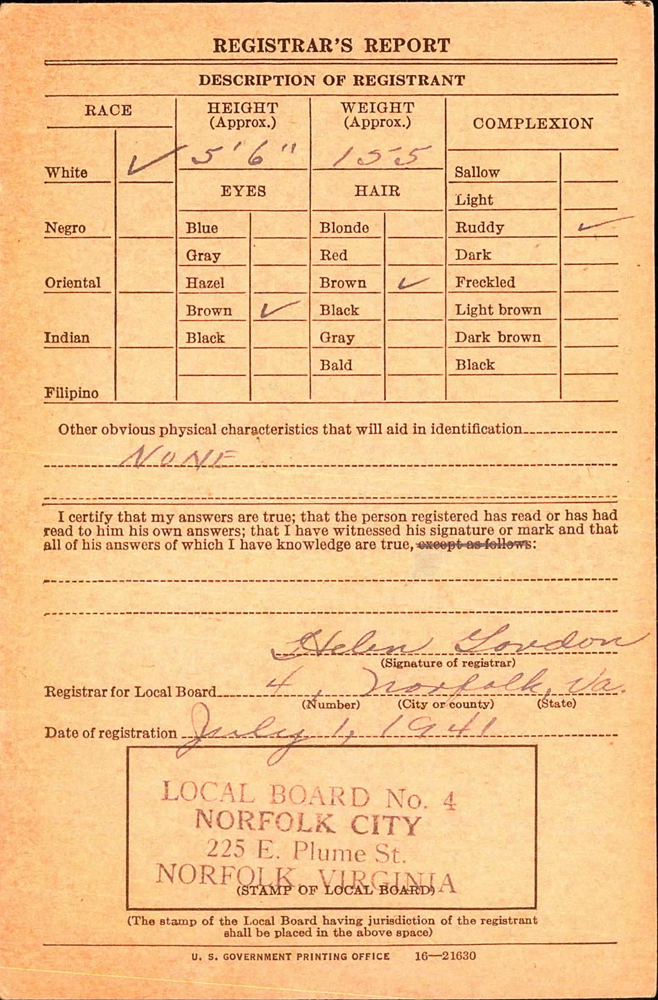 REGISTRAR'S REPORT
DESCRIPTION OF REGISTRANT
RACE
HEIGHT
(Approx.)
WEIGHT
(Approx.)
COMPLEXION
White ✓
5'6"
155
Sallow
EYES
HAIR
Light
Negro
Blue
Blonde
Ruddy ✓
Gray
Red
Dark
Oriental
Hazel
Brown ✓
Freckled
Brown ✓
Black
Light brown
Indian
Black
Gray
Dark brown
Bald
Black
Filipino
Other obvious physical characteristics that will aid in identification
NONE
I certify that my answers are true; that the person registered has read or has had
read to him his own answers; that I have witnessed his signature or mark and that
all of his answers of which I have knowledge are true, except as follows:
Helen Gordon
(Signature of registrar)
Registrar for Local Board 4, Norfolk, Va.
(Number) (City or county) (State)
Date of registration July 1, 1941
LOCAL BOARD No. 4
NORFOLK CITY
225 E. Plume St.
NORFOLK, VIRGINIA
(STAMP OF LOCAL BOARD)
(The stamp of the Local Board having jurisdiction of the registrant
shall be placed in the above space)
U. S. GOVERNMENT PRINTING OFFICE 16—21630